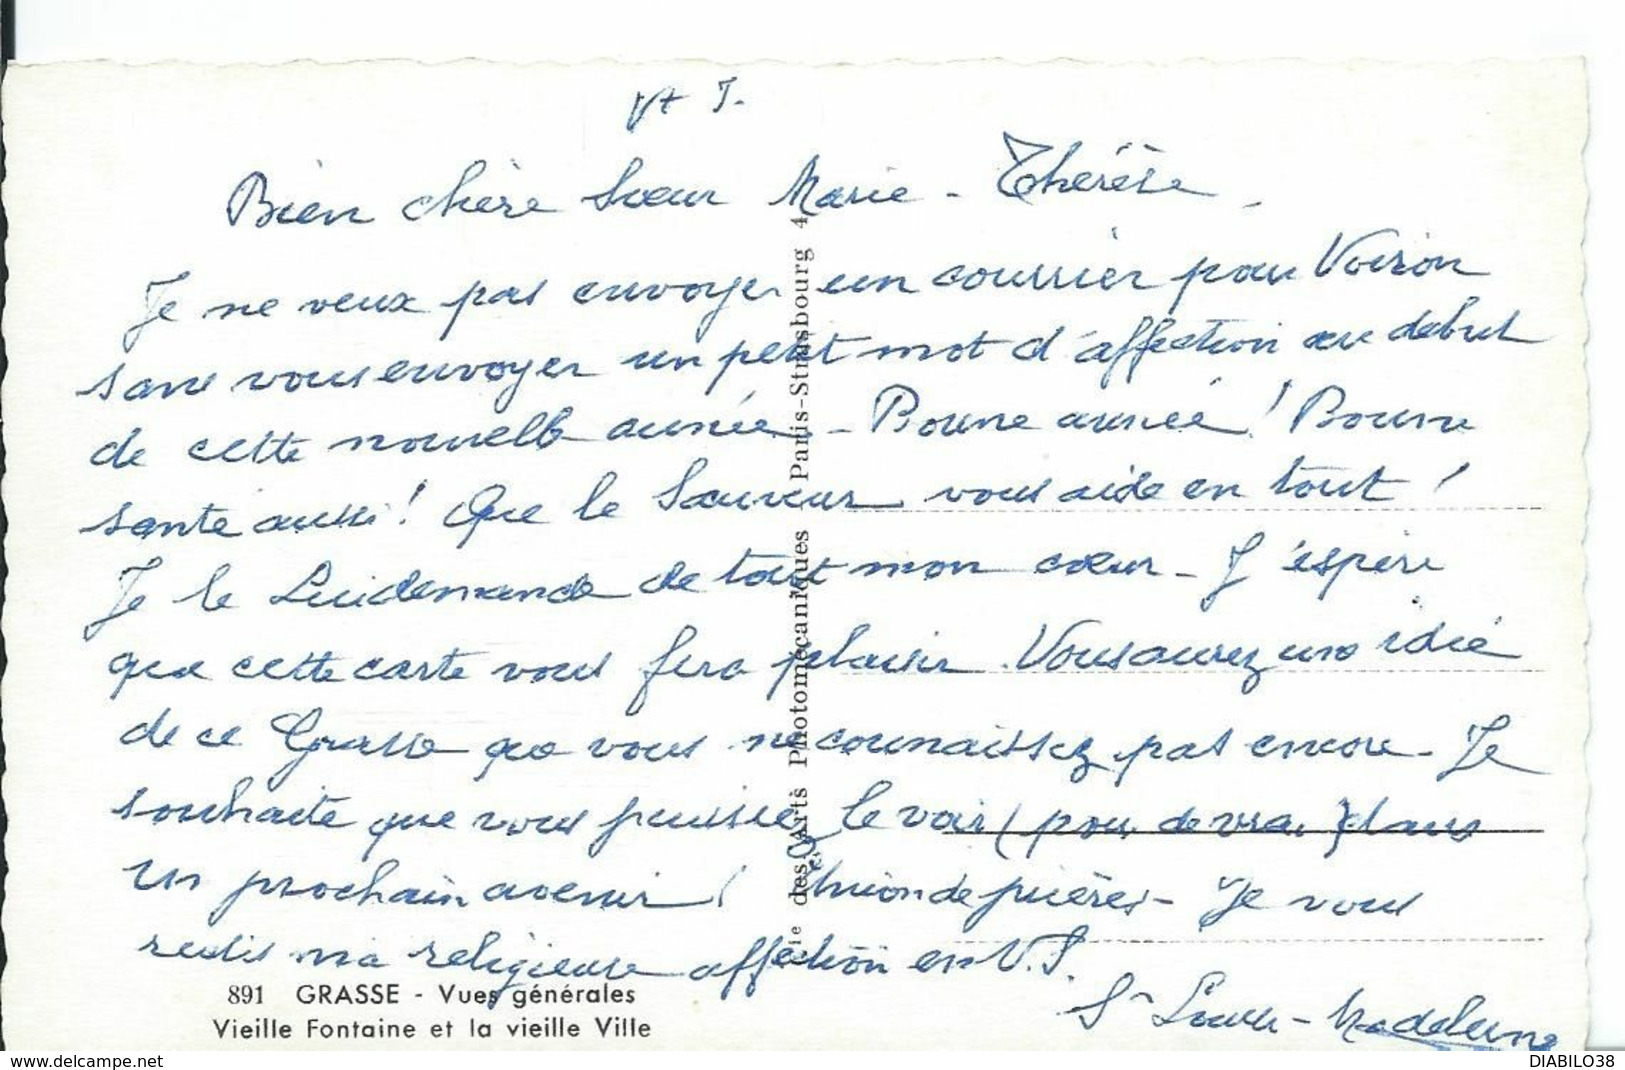 V+ J.
Bien chère Sœur Marie-Thérèse,
Je ne veux pas envoyer un courrier pour Voiron
sans vous envoyer un petit mot d'affection au début
de cette nouvelle année - Bonne année! Bonne
santé aussi! Que le Sauveur vous aide en tout!
Je le Lui demande de tout mon cœur - J'espère
que cette carte vous fera plaisir. Vous aurez une idée
de ce Grasse que vous ne connaissez pas encore - Je
souhaite que vous puissiez le voir (pour de vrai) dans
un prochain avenir! Union de prières - Je vous
redis ma religieuse affection en V.J.
Sr Louise-Madeleine
Cie des Arts Photomécaniques Paris-Strasbourg 4
891 GRASSE - Vues générales
Vieille Fontaine et la vieille Ville
www.delcampe.net
DIABILO38